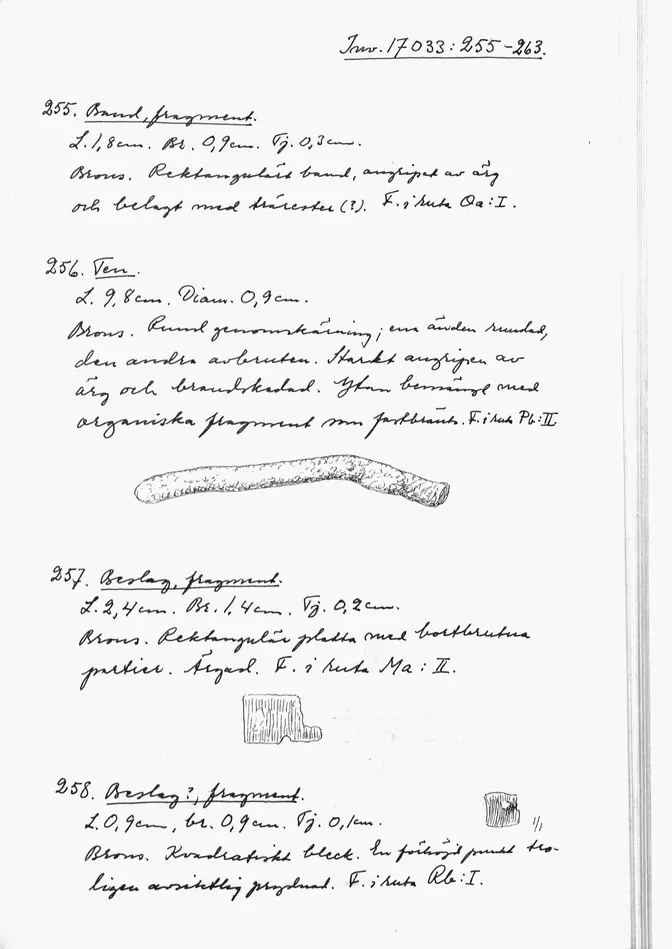 Inv. 17033:255-263.
255. Band, fragment.
L. 1,8cm. Br. 0,9cm. Tj. 0,3cm.
Brons. Rektangulärt band, angripet av ärg
och belagt med trärester (?). F. i ruta Oa:I.
256. Ten.
L. 9,8cm. Diam. 0,9cm.
Brons. Rund genomskärning; ena änden rundad,
den andra avbruten. Starkt angripen av
ärg och brandskadad. Ytan bemängd med
organiska fragment som fastbränts. F. i ruta Pb:II
257. Beslag, fragment.
L. 2,4cm. Br. 1,4cm. Tj. 0,2cm.
Brons. Rektangulär platta med bortbrutna
partier. Ärgad. F. i ruta Ma:II.
258. Beslag?, fragment.
L. 0,9cm, br. 0,9cm. Tj. 0,1cm.
1/1
Brons. Kvadratiskt bleck. En förhöjd punkt tro-
ligen avsiktlig prydnad. F. i ruta Rb:I.